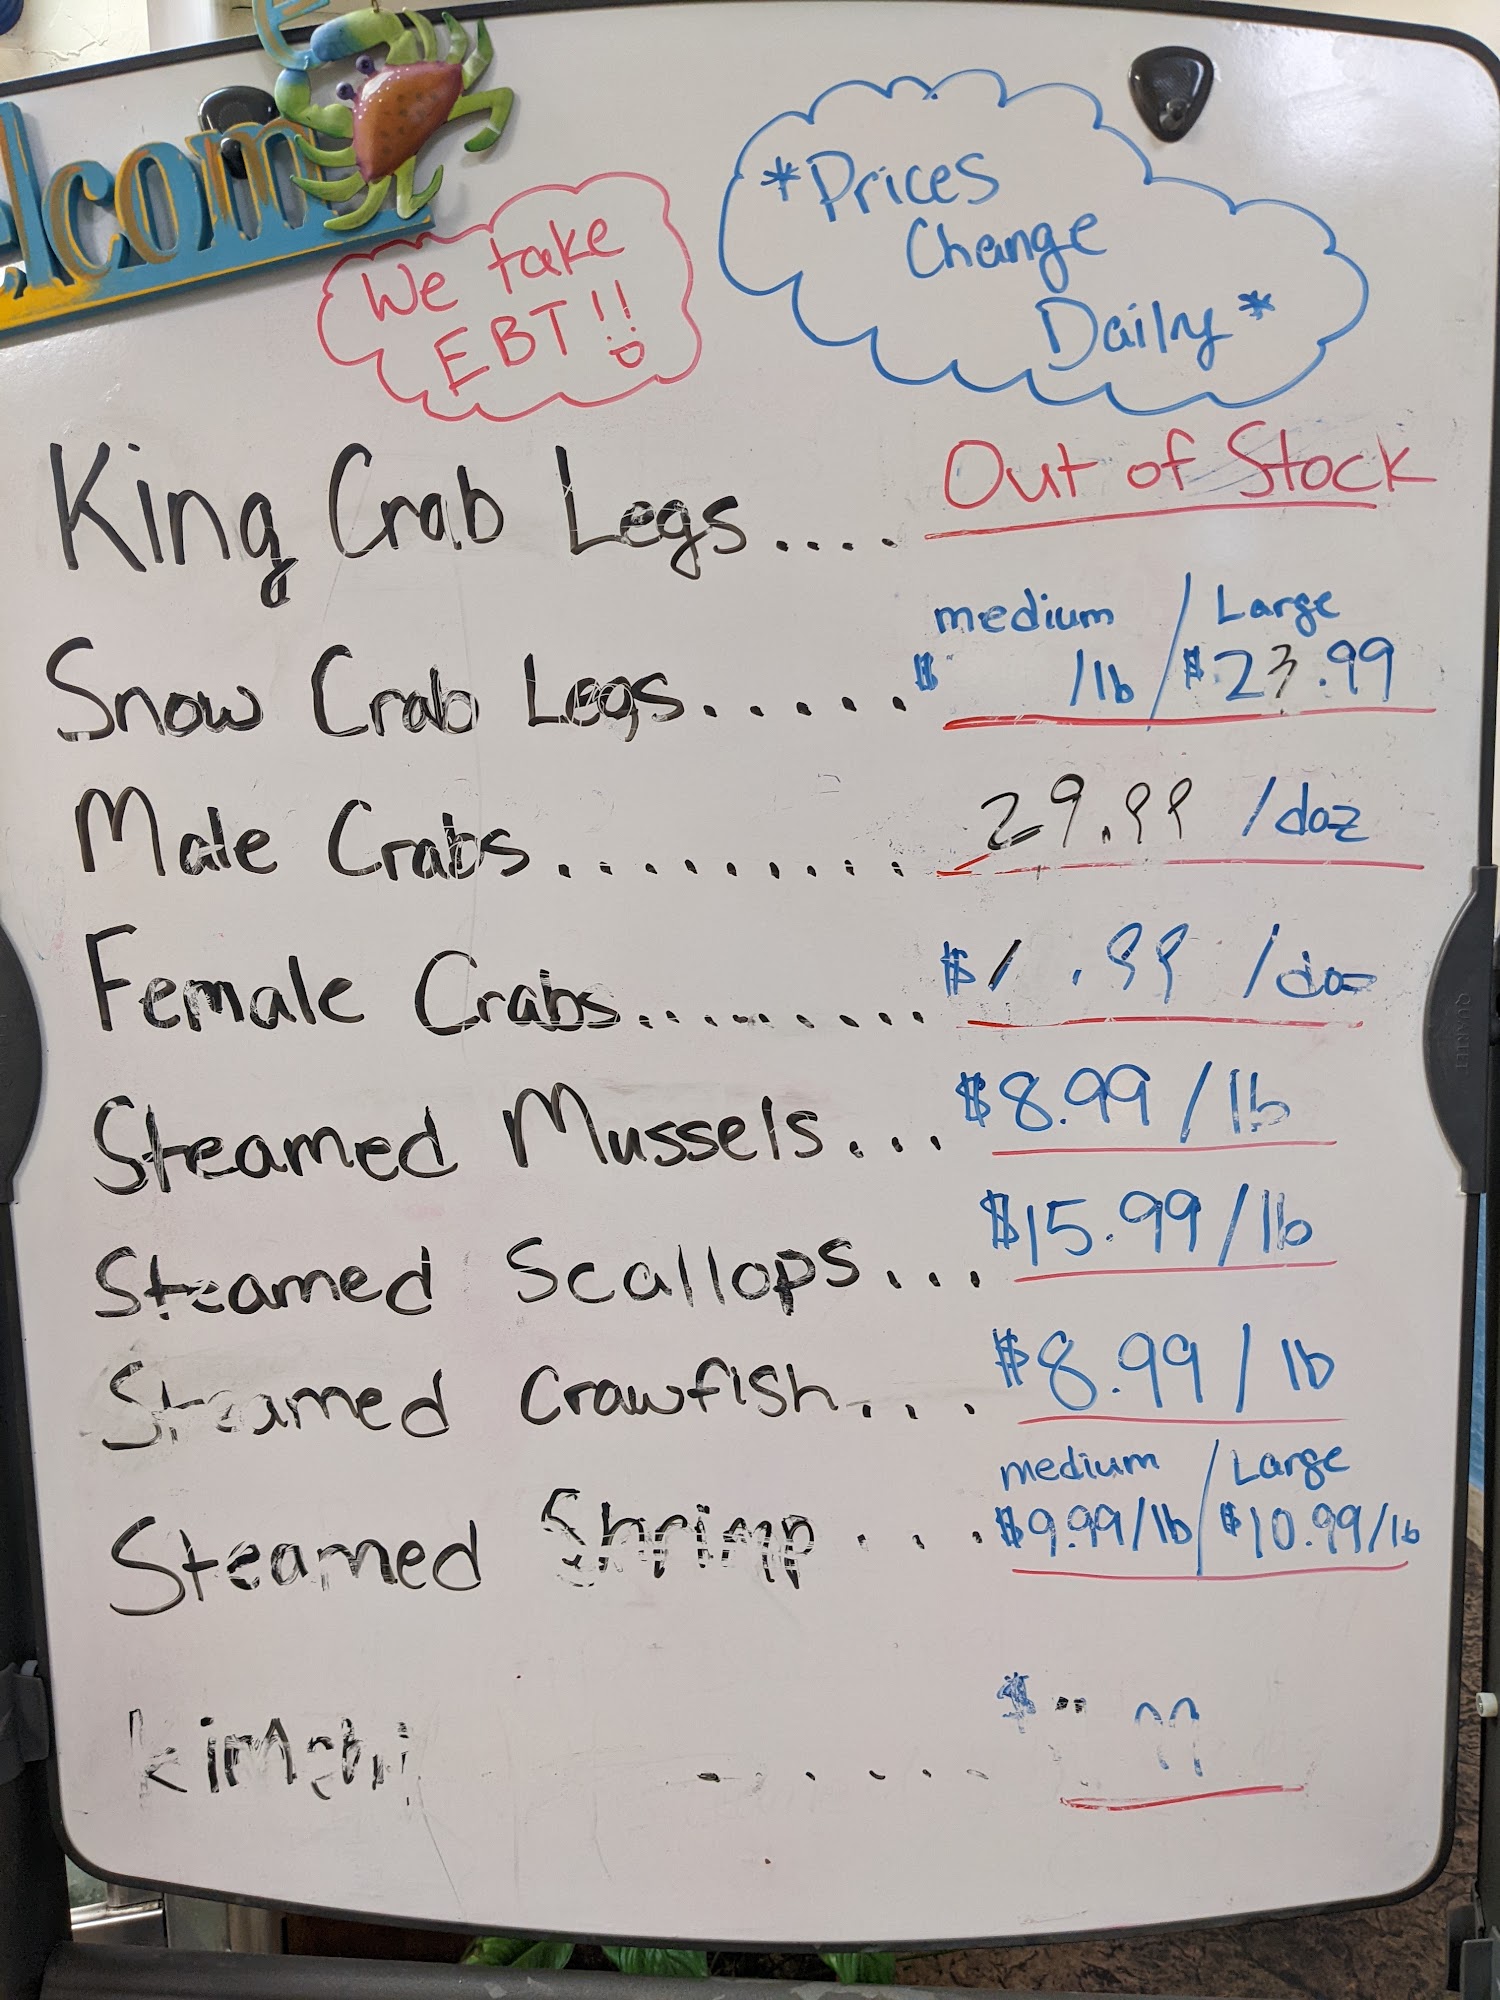 elcome
We take
EBT!!
*Prices
Change
Daily*
King Crab Legs.... Out of Stock
medium / Large
Snow Crab Legs...... $ /lb / $23.99
Male Crabs.......... 29.99 /doz
Female Crabs......... $1 .99 /doz
Steamed Mussels... $8.99/lb
Steamed Scallops... $15.99/lb
Steamed Crawfish... $8.99/lb
medium / Large
Steamed Shrimp... $9.99/lb / $10.99/lb
kimchi ...... $
QUARTET